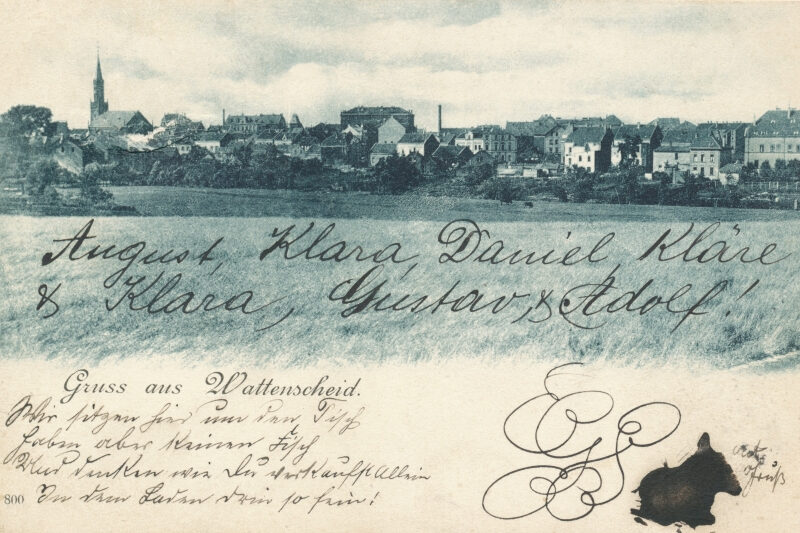 August, Klara, Daniel, Kläre
& Klara, Gustav, & Adolf!
Gruss aus Wattenscheid.
Wir sitzen hier um den Tisch
haben aber keinen Fisch
Und denken wie Du verkaufst Allein
In dem Laden drin so fein!
Gruß
800